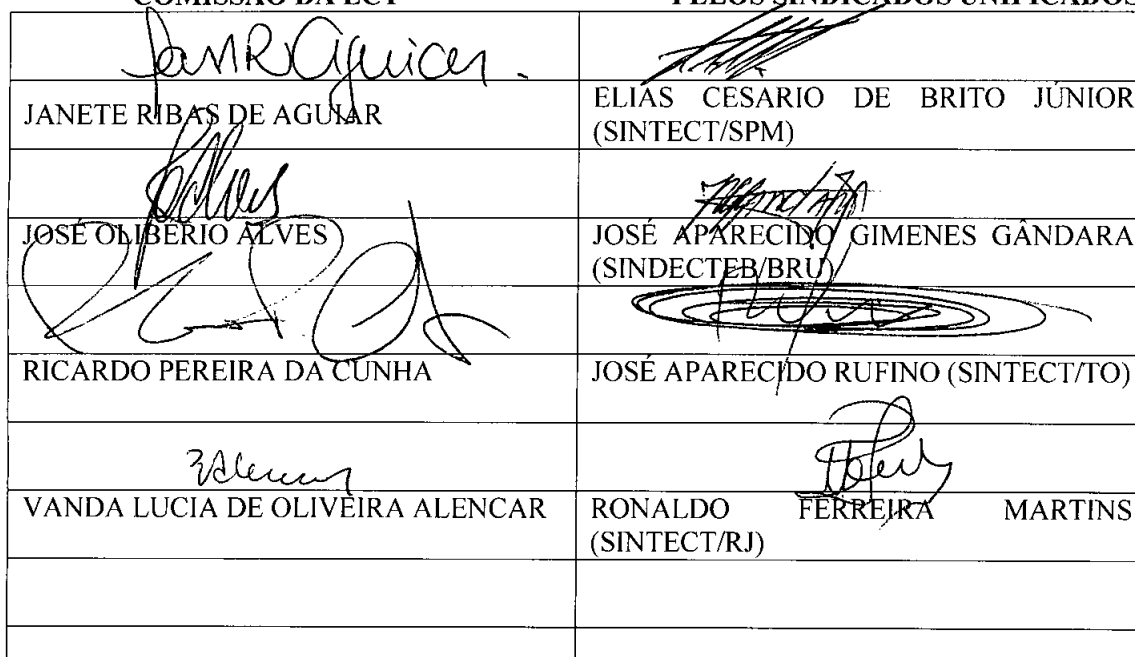 COMISSÃO DA ECT
PELOS SINDICADOS UNIFICADOS
JANETE RIBAS DE AGUIAR
ELIAS CESARIO DE BRITO JÚNIOR
(SINTECT/SPM)
JOSÉ OLIBERIO ALVES
JOSÉ APARECIDO GIMENES GÂNDARA
(SINDECTEB/BRU)
RICARDO PEREIRA DA CUNHA
JOSÉ APARECIDO RUFINO (SINTECT/TO)
VANDA LUCIA DE OLIVEIRA ALENCAR
RONALDO FERREIRA MARTINS
(SINTECT/RJ)